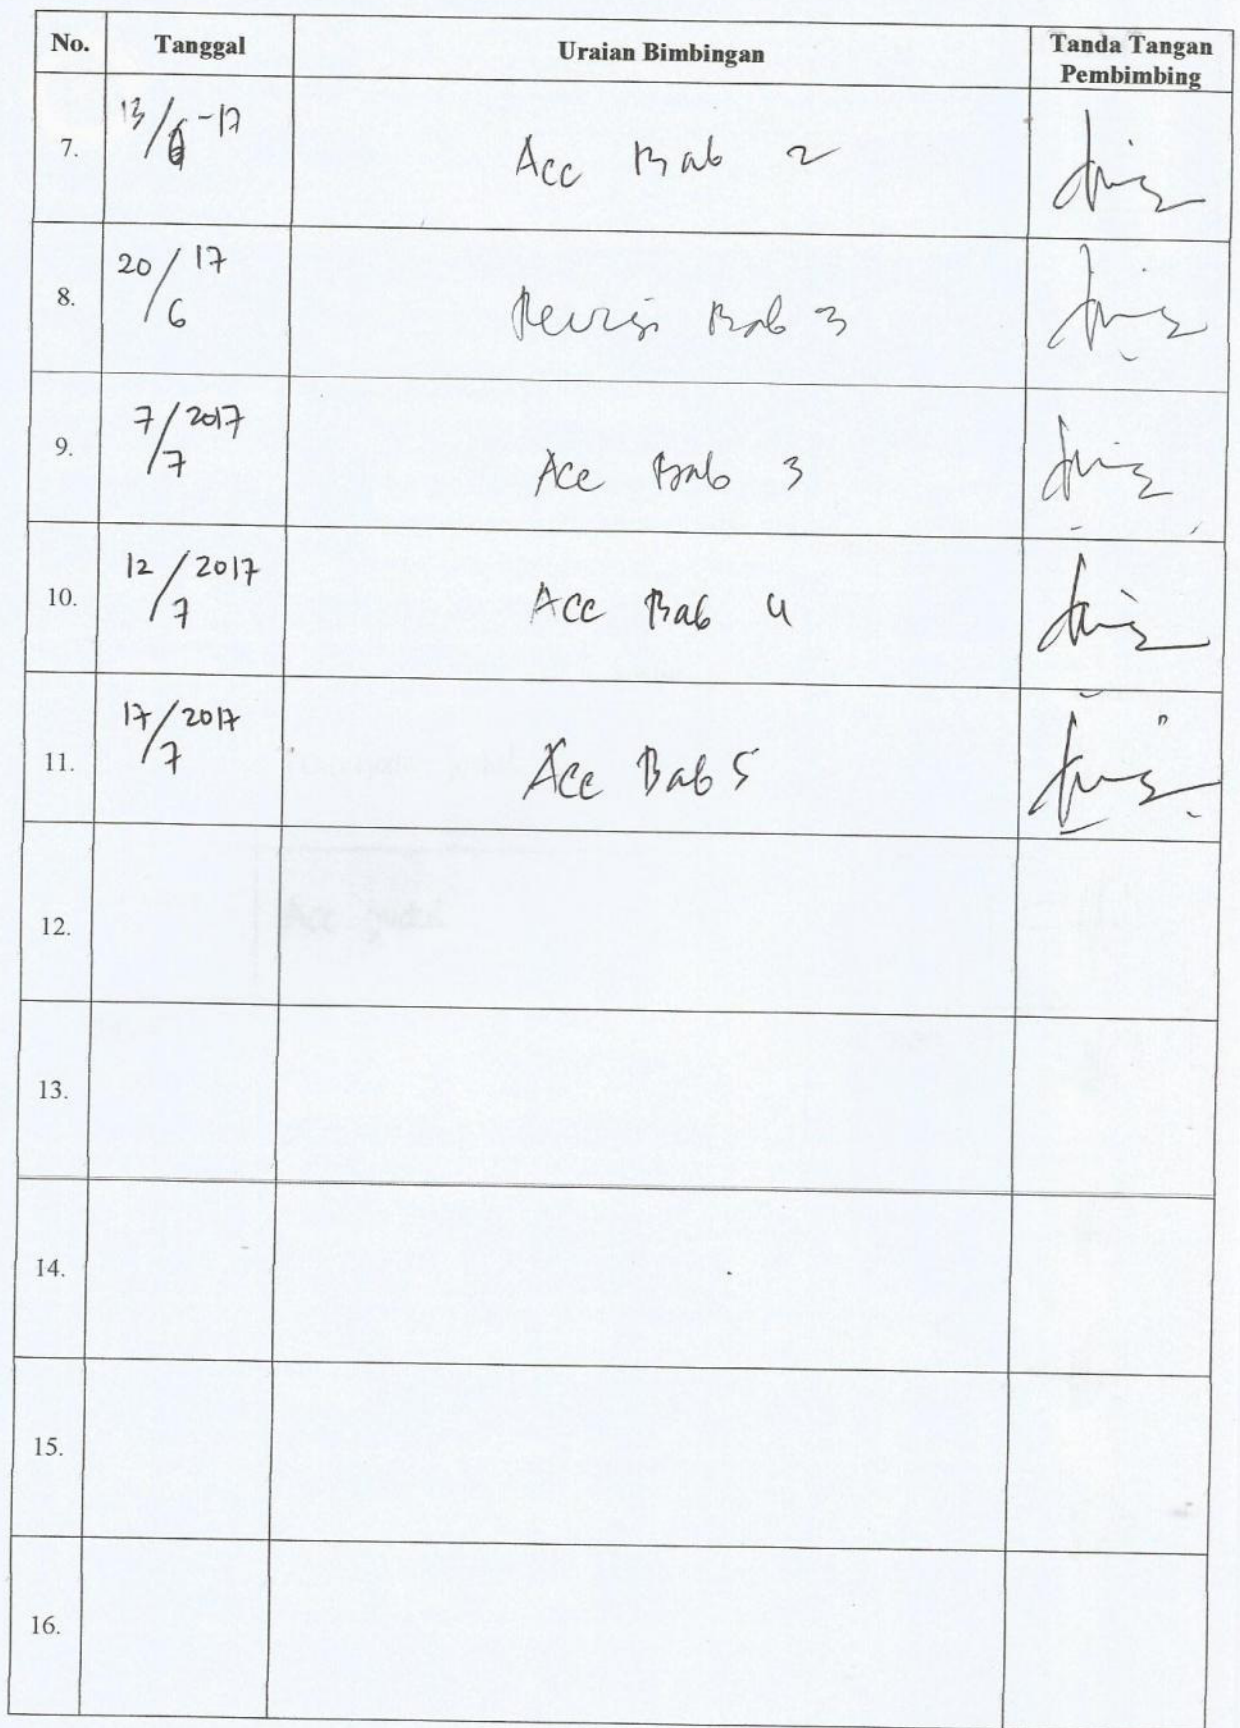 No. Tanggal Uraian Bimbingan Tanda Tangan Pembimbing
7. 13/6-17 Acc Bab 2
8. 20/6 17 Revisi Bab 3
9. 7/7 2017 Acc Bab 3
10. 12/7 2017 Acc Bab 4
11. 17/7 2017 Acc Bab 5
12.
13.
14.
15.
16.